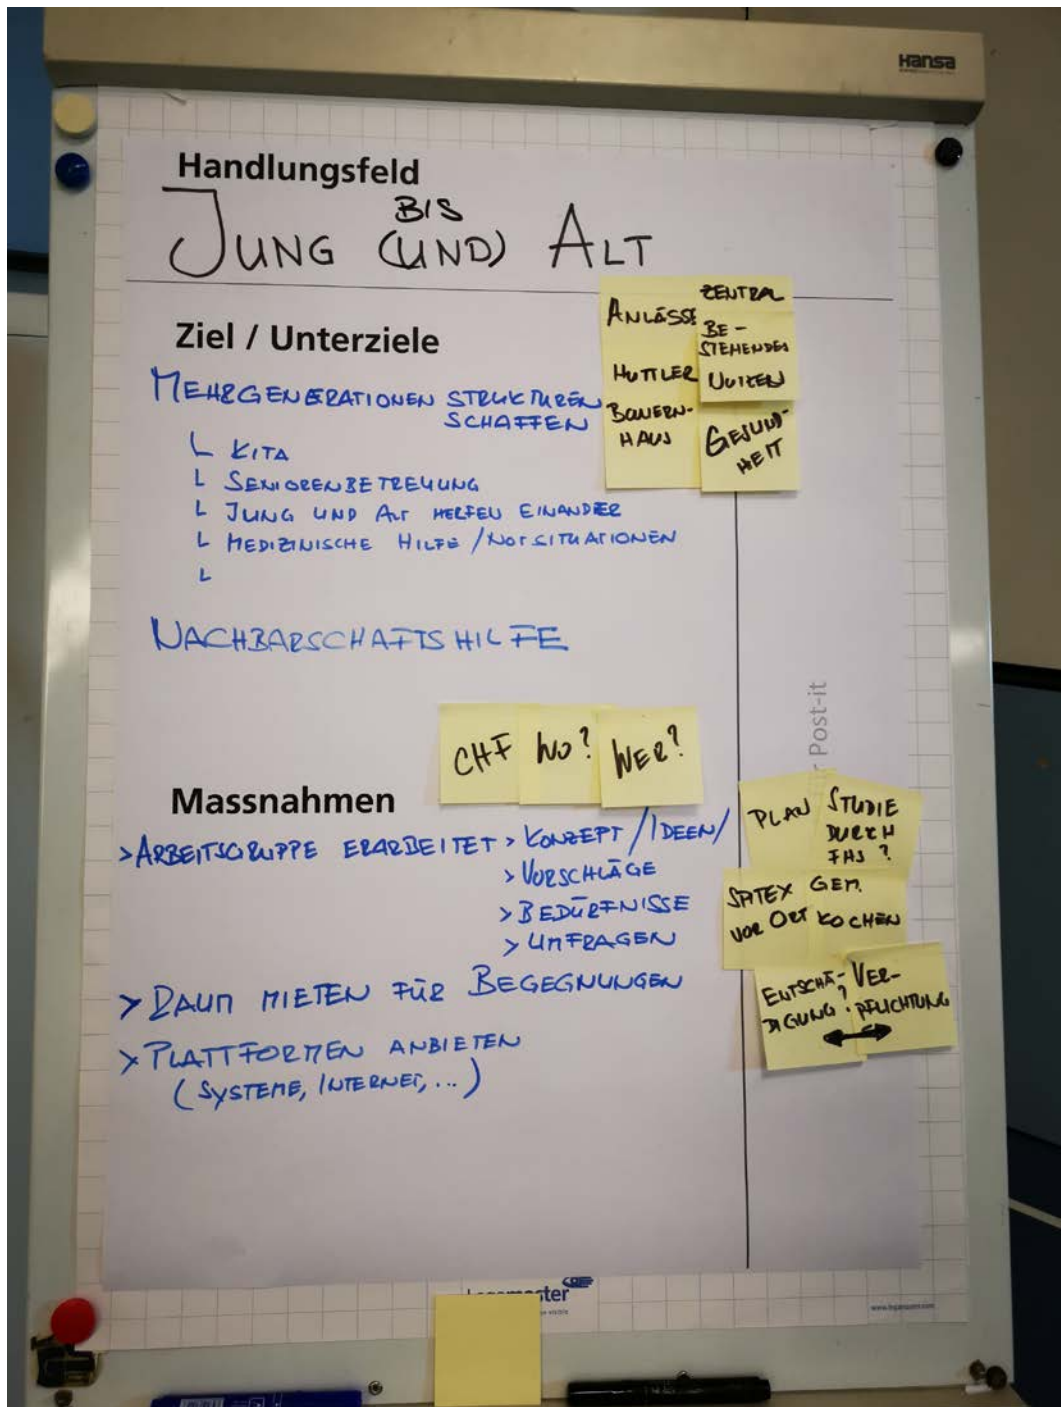 Hansa
Handlungsfeld
BIS
JUNG (UND) ALT
Ziel / Unterziele
MEHRGENERATIONEN STRUKTUREN
SCHAFFEN
KITA
SENIORENBETREUUNG
JUNG UND ALT HELFEN EINANDER
MEDIZINISCHE HILFE / NOTSITUATIONEN
NACHBARSCHAFTSHILFE
ANLÄSSE
HUTTLER
BAUERN-
HAUS
ZENTRAL
BE-
STEHENDES
NUTZEN
GESUND-
HEIT
CHF
WO?
WER?
Post-it
Massnahmen
> ARBEITSGRUPPE ERARBEITET > KONZEPT / IDEEN /
> VORSCHLÄGE
> BEDÜRFNISSE
> UMFRAGEN
> RAUM MIETEN FÜR BEGEGNUNGEN
> PLATTFORMEN ANBIETEN
(SYSTEME, INTERNET, ...)
PLAN
STUDIE
DURCH
FHS ?
SPITEX
VOR ORT
GEM.
KOCHEN
ENTSCHÄ-
DIGUNG?
VER-
PFLICHTUNG